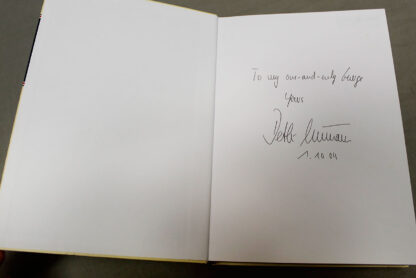 To my one-and-only George
Yours
Peter
1.10.04